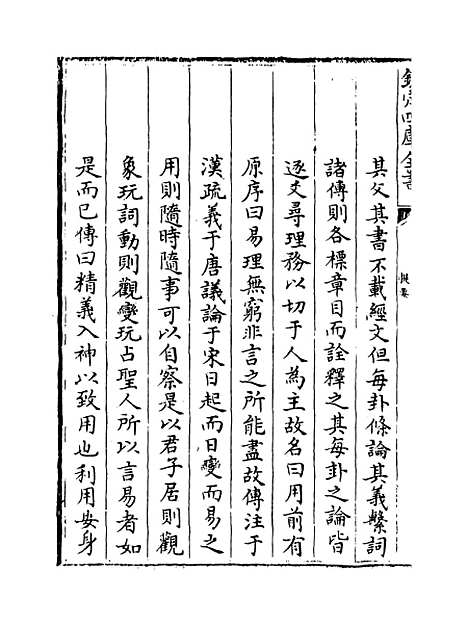 欽定四庫全書
提要
其父其書不載經文但每卦條論其義繫詞
諸傳則各標章目而詮釋之其每卦之論皆
逐爻尋理務以切于人為主故名曰用前有
原序曰易理無窮非言之所能盡故傳注于
漢疏義于唐議論于宋日起而日變而易之
用則隨時隨事可以自察是以君子居則觀
象玩詞動則觀變玩占聖人所以言易者如
是而已傳曰精義入神以致用也利用安身